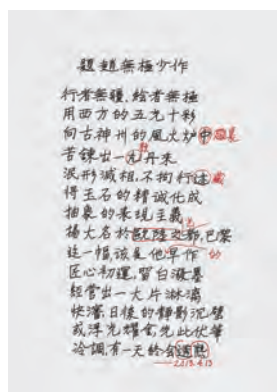 題趙無極少作
行者無疆，繪者無極
用西方的五光十彩
向古神州的風火炉中
苦鍊出一丸丹来
泯形滅相，不拘行迹
得玉石的精誠化成
抽象的表現主義
揚大名於歐陸、巴黎
這一幅，該是他早作
匠心初運，留白潑墨
經營出一大片淋漓
快瀉，日後的靜影沉璧
或浮光耀金，先此伏筆
冷調，有一天終會
2013.4.13